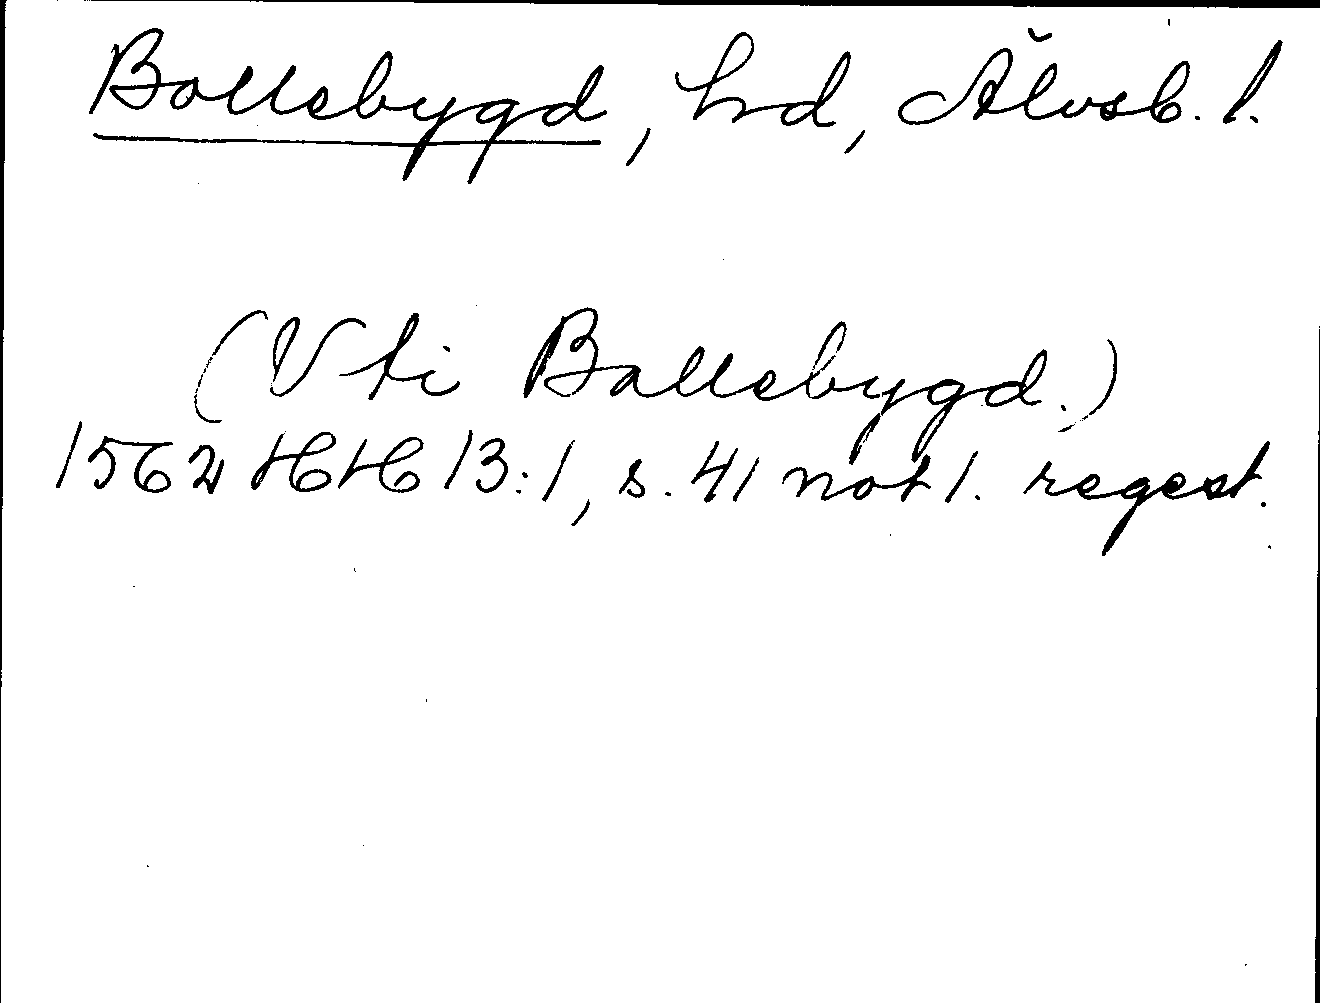 Bollebygd, hd, Älvsb. l.
(Vti Ballebygd.)
1562 HH 13:1, s. 41 not 1. regest.